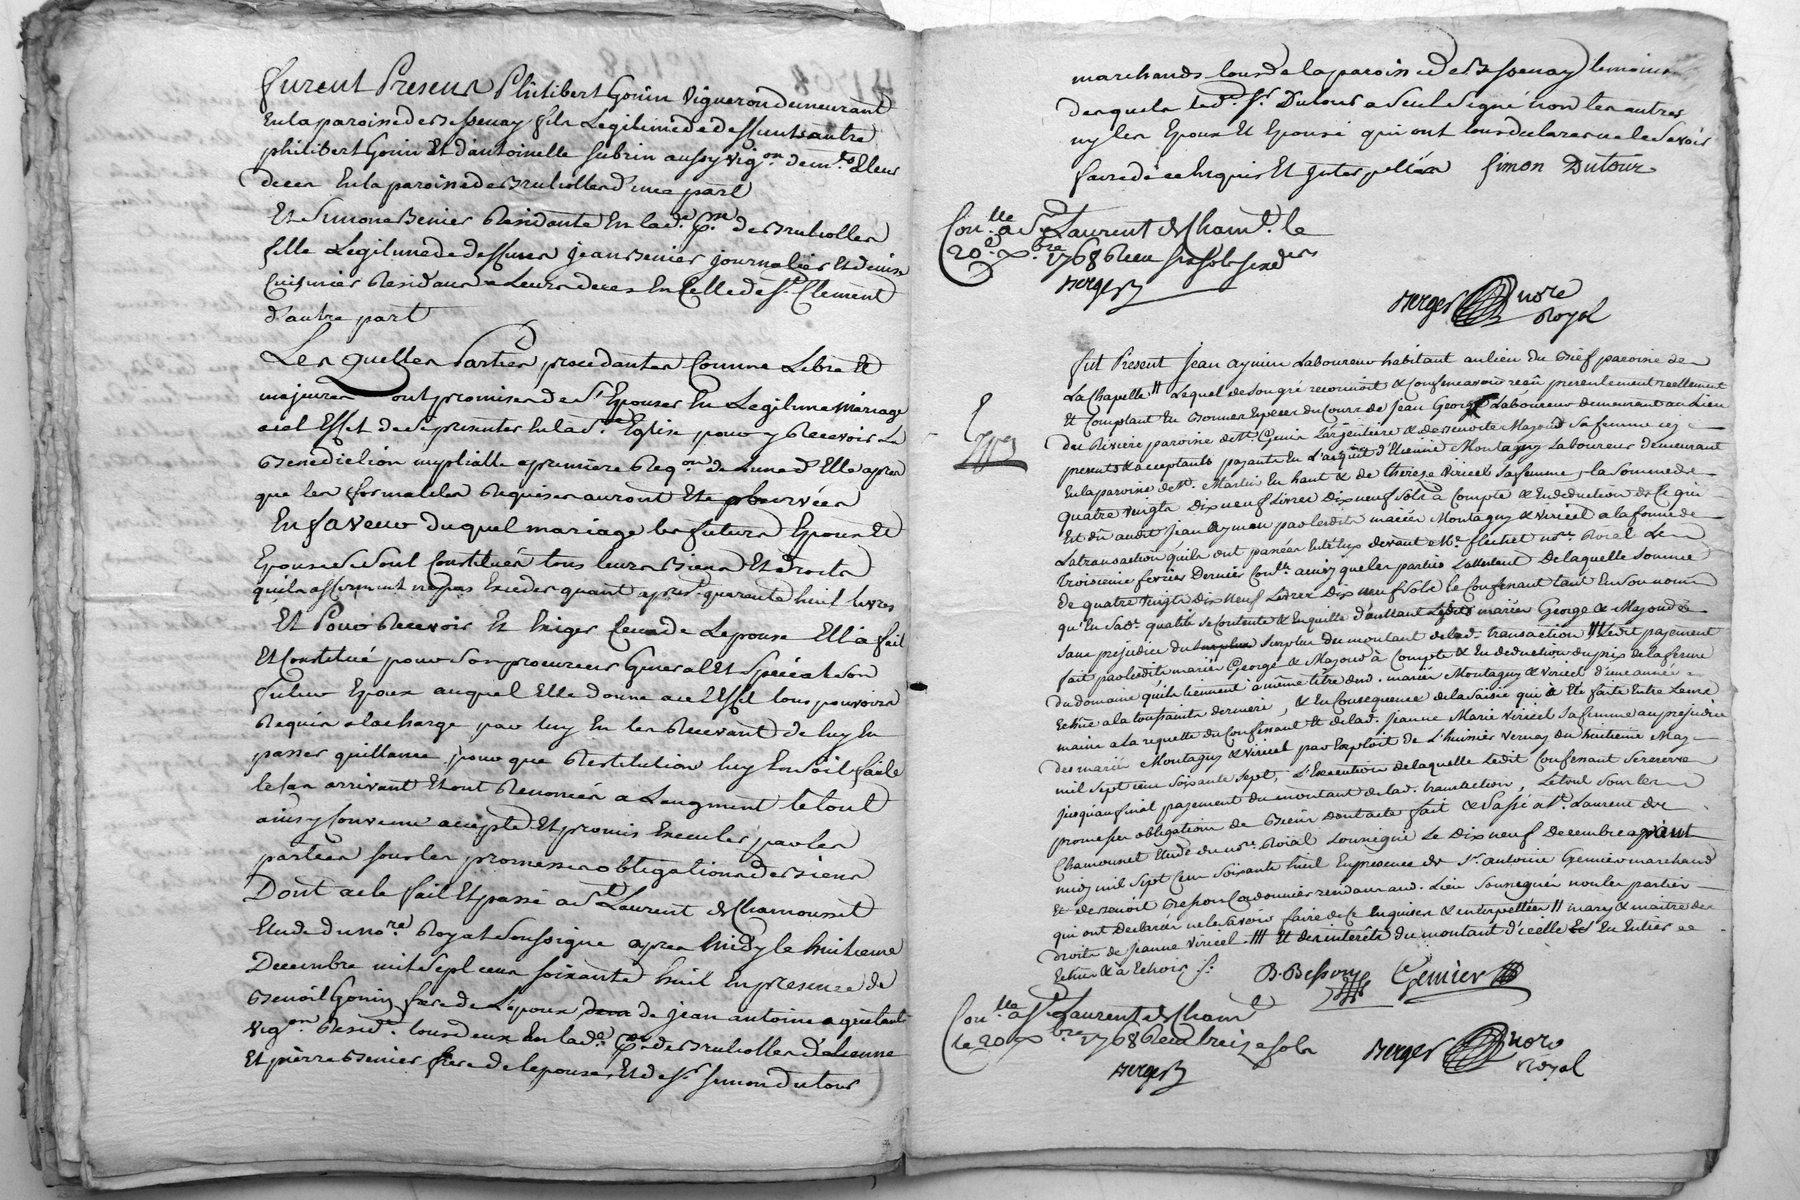 furent Presens Philibert Gonin Vigneron demeurant
En la paroisse de Bessenay fils Legitime de deffunts autre
philibert Gonin Et d'antoinette Subrin aussy vig.on dem.ts a Leur
deces En la paroisse de Brullolles d'une part
Et Simone Benier Residante En lad.e p.sse de Brullolles
fille Legitime de deffuns Jean Benier journalier Et denise
Cuisinier Residans a Leurs deces En Celle de S.t Clement
d'autre part
Les quelles Parties procedantes Comme Libre Et
majeures ont promises de s'Epouser En Legitime mariage
a cet Effet de se presenter En la S.te Eglise pour y Recevoir La
Benediction nuptialle a premiere Req.on de L'une d'Elle apres
que les formalités Requises auront Eté observées
En faveur duquel mariage les futurs Epoux Et
Epouse se sont Constitués tous leurs Biens Et droits
qu'ils affirment ne pas Exceder quant a pres.t quarante huit livres
Et Pour Recevoir Et Exiger Ceux de L'epouse Ell'a fait
Et Constitué pour Son procureur General Et Special Son
futur Epoux auquel Elle donne a cet Effet tous pouvoirs
Requis a la charge par luy En les Recevant de luy En
passer quittance pour que Restitution luy En soit faite
le Cas arrivant Et ont Renoncés a L'augment le tout
ainsy Convenu accepté Et promis Executer par les
parties sous les promesses obligations de Biens
Dont acte fait Et passé a S.t Laurent de Chamousset
Etude du no.re Royal Soussigné apres midy le huitieme
Decembre mil sept cens soixante huit En presence de
Benoit Gonin frere de L'epoux de jean antoine aguettant
vig.on Resid.t tous deux En lad.e p.sse de Brullolles d'etienne
Et pierre Benier frere de lepouse, Et de S.r Simon Dutour
marchands tous de la paroisse de Bessenay temoins
desquels led.t S.r Dutour a Seul Signé non les autres
ny les Epoux Et Epouse qui ont tous declarés ne le Savoir
faire de ce Enquis Et Interpellés Simon Dutour
Con.lle a S.t Laurent de Cham.t le
20.e X.bre 1768 Recu
Berger
Berger nore
Royal
fut Present Jean aymin Laboureur habitant au lieu du Brief paroisse de
La Chapelle // Lequel de son gré reconnoit & Confesse avoir reçu presentement reellement
Et Comptant En Bonnes Especes du Cours de Jean George Laboureur demeurant au Lieu
des Rivière paroisse de St Genis L'argentiere & de Benoite Mazoud sa femme icy
presents & acceptants payants En L'acquit d'Etienne Montagny Laboureur demeurant
En la paroisse de St. Martin En haut & de therese Viricel sa femme, la somme de
quatre vingts dix neuf Livres Dix neuf Sols à Compte & En deduction de Ce qui
Est dû audit Jean Aymin par lesdits mariés Montagny & Viricel a la forme de
La transaction qu'ils ont passées Entr'eux devant Me. flechet no.re Roial Le
troisieme fevrier Dernier Con.lle ainsy que les parties L'attestent De laquelle Somme
de quatre vingts dix neuf Livres Dix neuf Sols le Confessant tant En son nom
qu'En sad.e qualité se Contente & En quitte d'autant lesdits mariés George & Mazoud &
sans prejudice du surplus du montant de lad.e transaction // Ledit payement
fait par lesdits mariés George & Mazoud à Compte & En deduction du prix de la ferme
du domaine qu'ils tiennent à même titre desd. mariés Montagny & Viricel d'une année
Echue a la toussaints derniere, & En Consequence de la Saisie qui à Eté faite Entre Leurs
mains a la requette du Confessant Et de lad.e Jeanne Marie Viricel sa femme au prejudice
des mariés Montagny & Viricel par Exploit de L'huissier Vernay du huitieme May
mil sept cens Soixante Sept, L'Execution de laquelle Ledit Confessant Se reserve
jusqu'au final payement du montant de lad.e transaction, Le tout sous les
promesses obligations de Biens dont acte fait & Passé a S.t Laurent de
Chamousset Etude du no.re Roial soussigné Le Dix neuf decembre avant
midy mil Sept Cens soixante huit En presence de S.r antoine Genier marchand
Et de Benoit Besson Cordonnier rendans aud. Lieu Soussignés non les parties
qui ont Declarés ne le Scavoir faire de Ce Enquises & interpellées // mary & maitre des
droits de Jeanne Viricel /// Et des interêts du montant d'icelle En Entier
Echus & à Echoir
B. Besson Genier
Con.lle a S.t Laurent de Cham.t
le 20 X.bre 1768 Recu treize sols
Berger
Berger nore
Royal